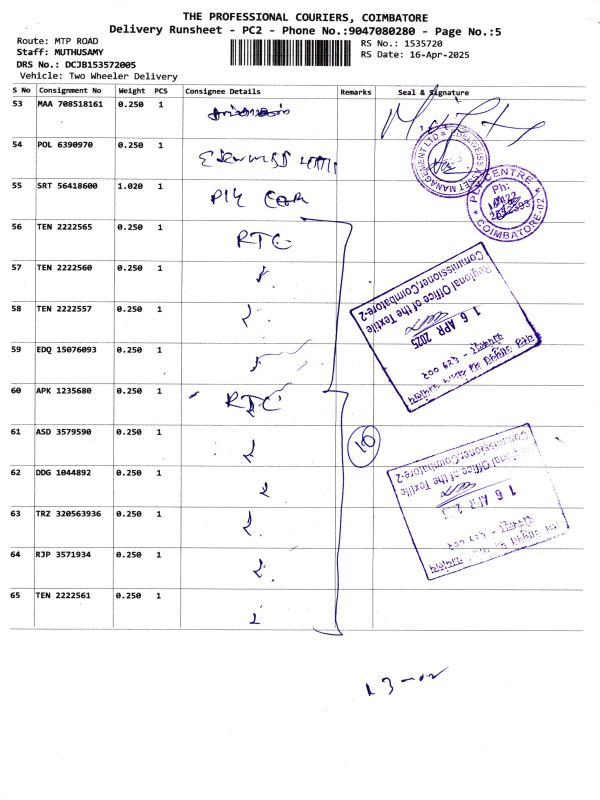 THE PROFESSIONAL COURIERS, COIMBATORE
Delivery Runsheet - PC2 - Phone No.:9047080280 - Page No.:5
Route: MTP ROAD
Staff: MUTHUSAMY
DRS No.: DCJB153572005
Vehicle: Two Wheeler Delivery
RS No.: 1535720
RS Date: 16-Apr-2025
S No Consignment No Weight PCS Consignee Details Remarks Seal & Signature
53 MAA 708518161 0.250 1
54 POL 6390970 0.250 1
55 SRT 56418600 1.020 1
56 TEN 2222565 0.250 1 RTC
57 TEN 2222560 0.250 1
58 TEN 2222557 0.250 1
59 EDQ 15076093 0.250 1
60 APK 1235680 0.250 1 RTC
61 ASD 3579590 0.250 1
62 DDG 1044892 0.250 1
63 TRZ 320563936 0.250 1
64 RJP 3571934 0.250 1
65 TEN 2222561 0.250 1
10
EDELWEISS ASSET MANAGEMENT LTD
PLY CENTRE
Ph:
COIMBATORE-02
Regional Office of the Textile
Commissioner,Coimbatore-2
16 APR 2025
Regional Office of the Textile
Commissioner,Coimbatore-2
16 APR